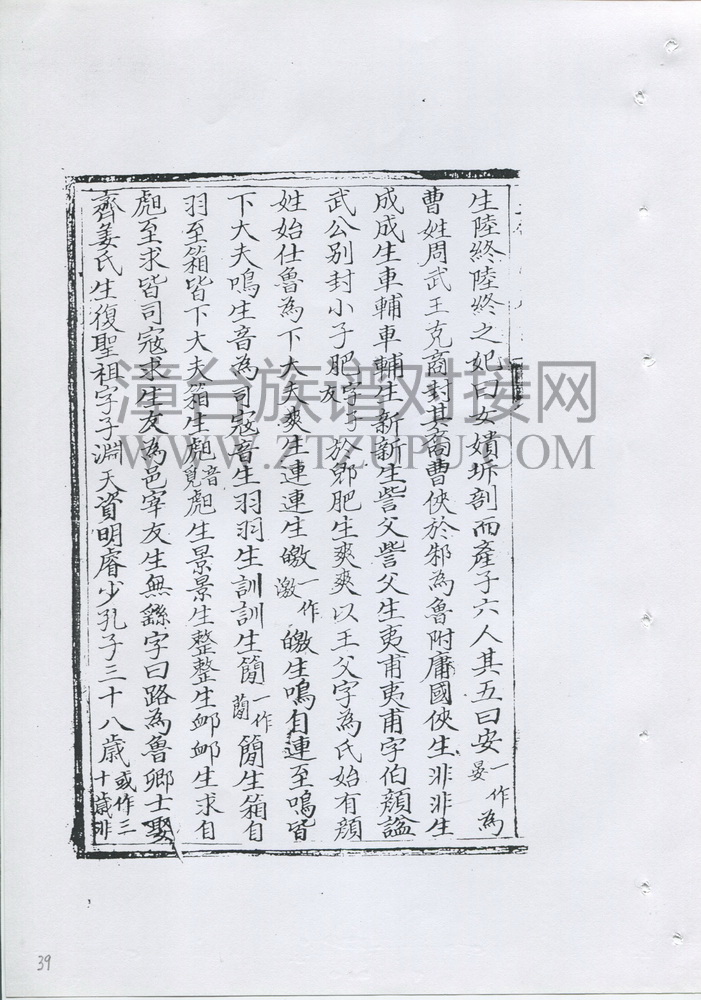 生陸終陸終之妃曰女嬇坼剖而產子六人其五曰安一作晏為
曹姓周武王克商封其裔曹俠於邾為魯附庸國俠生非非生
成成生車輔車輔生新新生訾父訾父生夷甫夷甫字伯顏諡
武公別封小子肥字子友於郳肥生爽爽以王父字為氏始有顏
姓始仕魯為下大夫爽生連連生皦一作激皦生鳴自連至鳴皆
下大夫鳴生音為司寇音生羽羽生訓訓生簡一作蕳簡生箱自
羽至箱皆下大夫箱生彪音覓彪生景景生整整生邮邮生求自
彪至求皆司寇求生友為邑宰友生無繇字曰路為魯卿士娶
齊姜氏生復聖祖字子淵天資明睿少孔子三十八歲或作三十歲非
漳台族谱对接网
WWW.ZTZUPU.COM
39